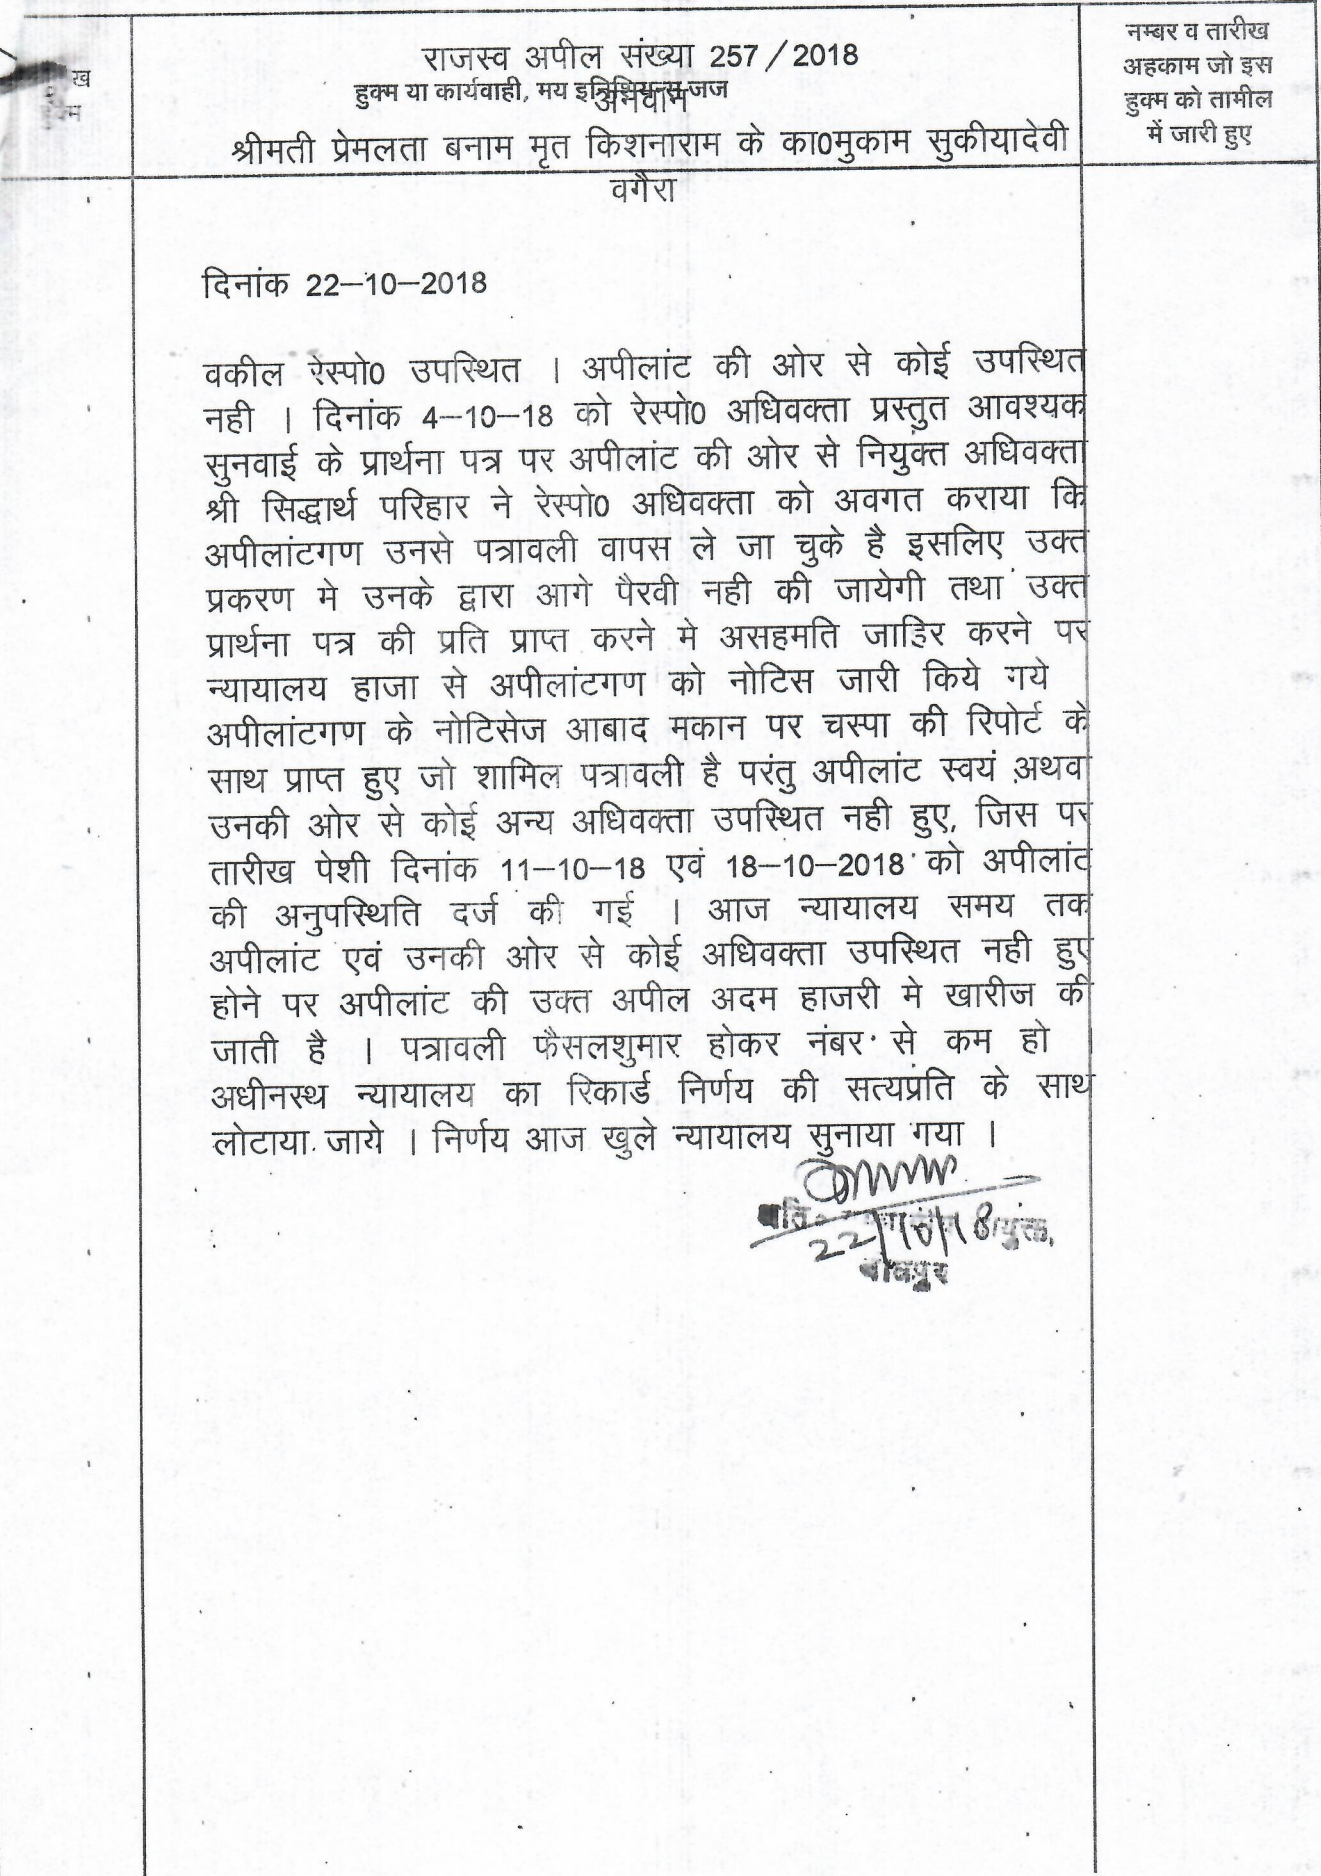 राजस्व अपील संख्या 257/2018
हुक्म या कार्यवाही, मय इनिशियल्स जज
अनवान
श्रीमती प्रेमलता बनाम मृत किशनाराम के का0मुकाम सुकीयादेवी
वगैरा
नम्बर व तारीख
अहकाम जो इस
हुक्म को तामील
में जारी हुए
ख
म
दिनांक 22–10–2018
वकील रेस्पो0 उपस्थित । अपीलांट की ओर से कोई उपस्थित
नही । दिनांक 4–10–18 को रेस्पो0 अधिवक्ता प्रस्तुत आवश्यक
सुनवाई के प्रार्थना पत्र पर अपीलांट की ओर से नियुक्त अधिवक्ता
श्री सिद्धार्थ परिहार ने रेस्पो0 अधिवक्ता को अवगत कराया कि
अपीलांटगण उनसे पत्रावली वापस ले जा चुके है इसलिए उक्त
प्रकरण मे उनके द्वारा आगे पैरवी नही की जायेगी तथा उक्त
प्रार्थना पत्र की प्रति प्राप्त करने मे असहमति जाहिर करने पर
न्यायालय हाजा से अपीलांटगण को नोटिस जारी किये गये
अपीलांटगण के नोटिसेज आबाद मकान पर चस्पा की रिपोर्ट के
साथ प्राप्त हुए जो शामिल पत्रावली है परंतु अपीलांट स्वयं अथवा
उनकी ओर से कोई अन्य अधिवक्ता उपस्थित नही हुए, जिस पर
तारीख पेशी दिनांक 11–10–18 एवं 18–10–2018 को अपीलांट
की अनुपस्थिति दर्ज की गई । आज न्यायालय समय तक
अपीलांट एवं उनकी ओर से कोई अधिवक्ता उपस्थित नही हुए
होने पर अपीलांट की उक्त अपील अदम हाजरी मे खारीज की
जाती है । पत्रावली फैसलशुमार होकर नंबर से कम हो
अधीनस्थ न्यायालय का रिकार्ड निर्णय की सत्यप्रति के साथ
लोटाया जाये । निर्णय आज खुले न्यायालय सुनाया गया ।
22/10/18